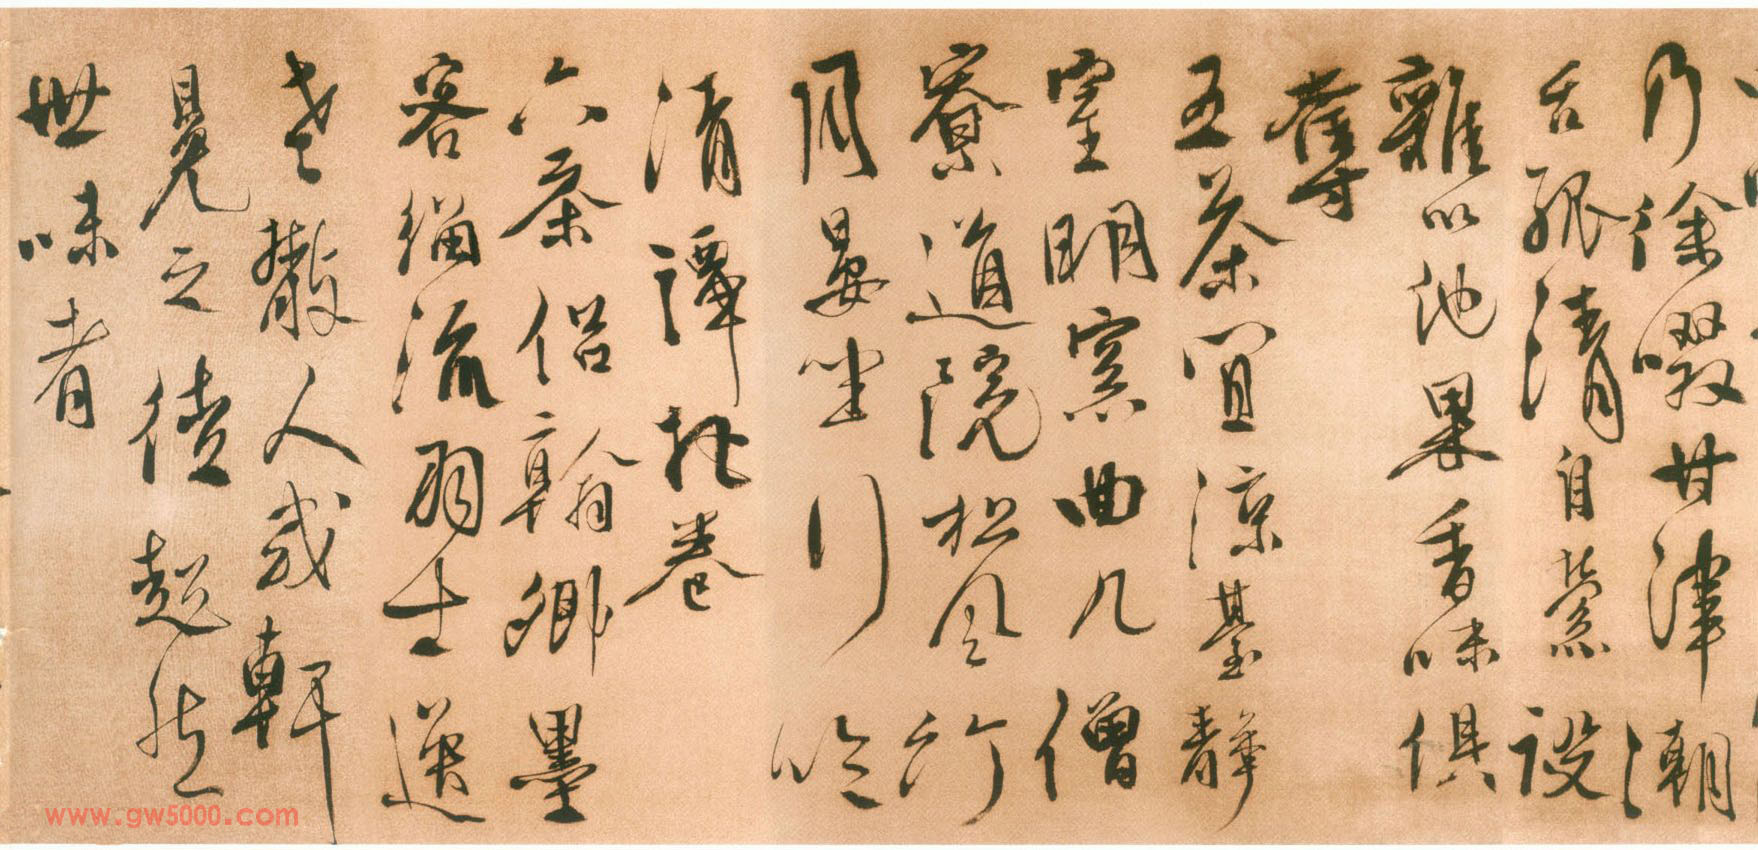 乃徐啜甘津潮
舌孤清自縈設
雜以他果香味俱
奪
五茶宜涼臺靜
室明窗曲几僧
寮道院松風竹
月晏坐行吟
清譚把卷
六茶侶翰卿墨
客緇流羽士逸
老散人或軒
冕之徒超然
世味者
www.gw5000.com